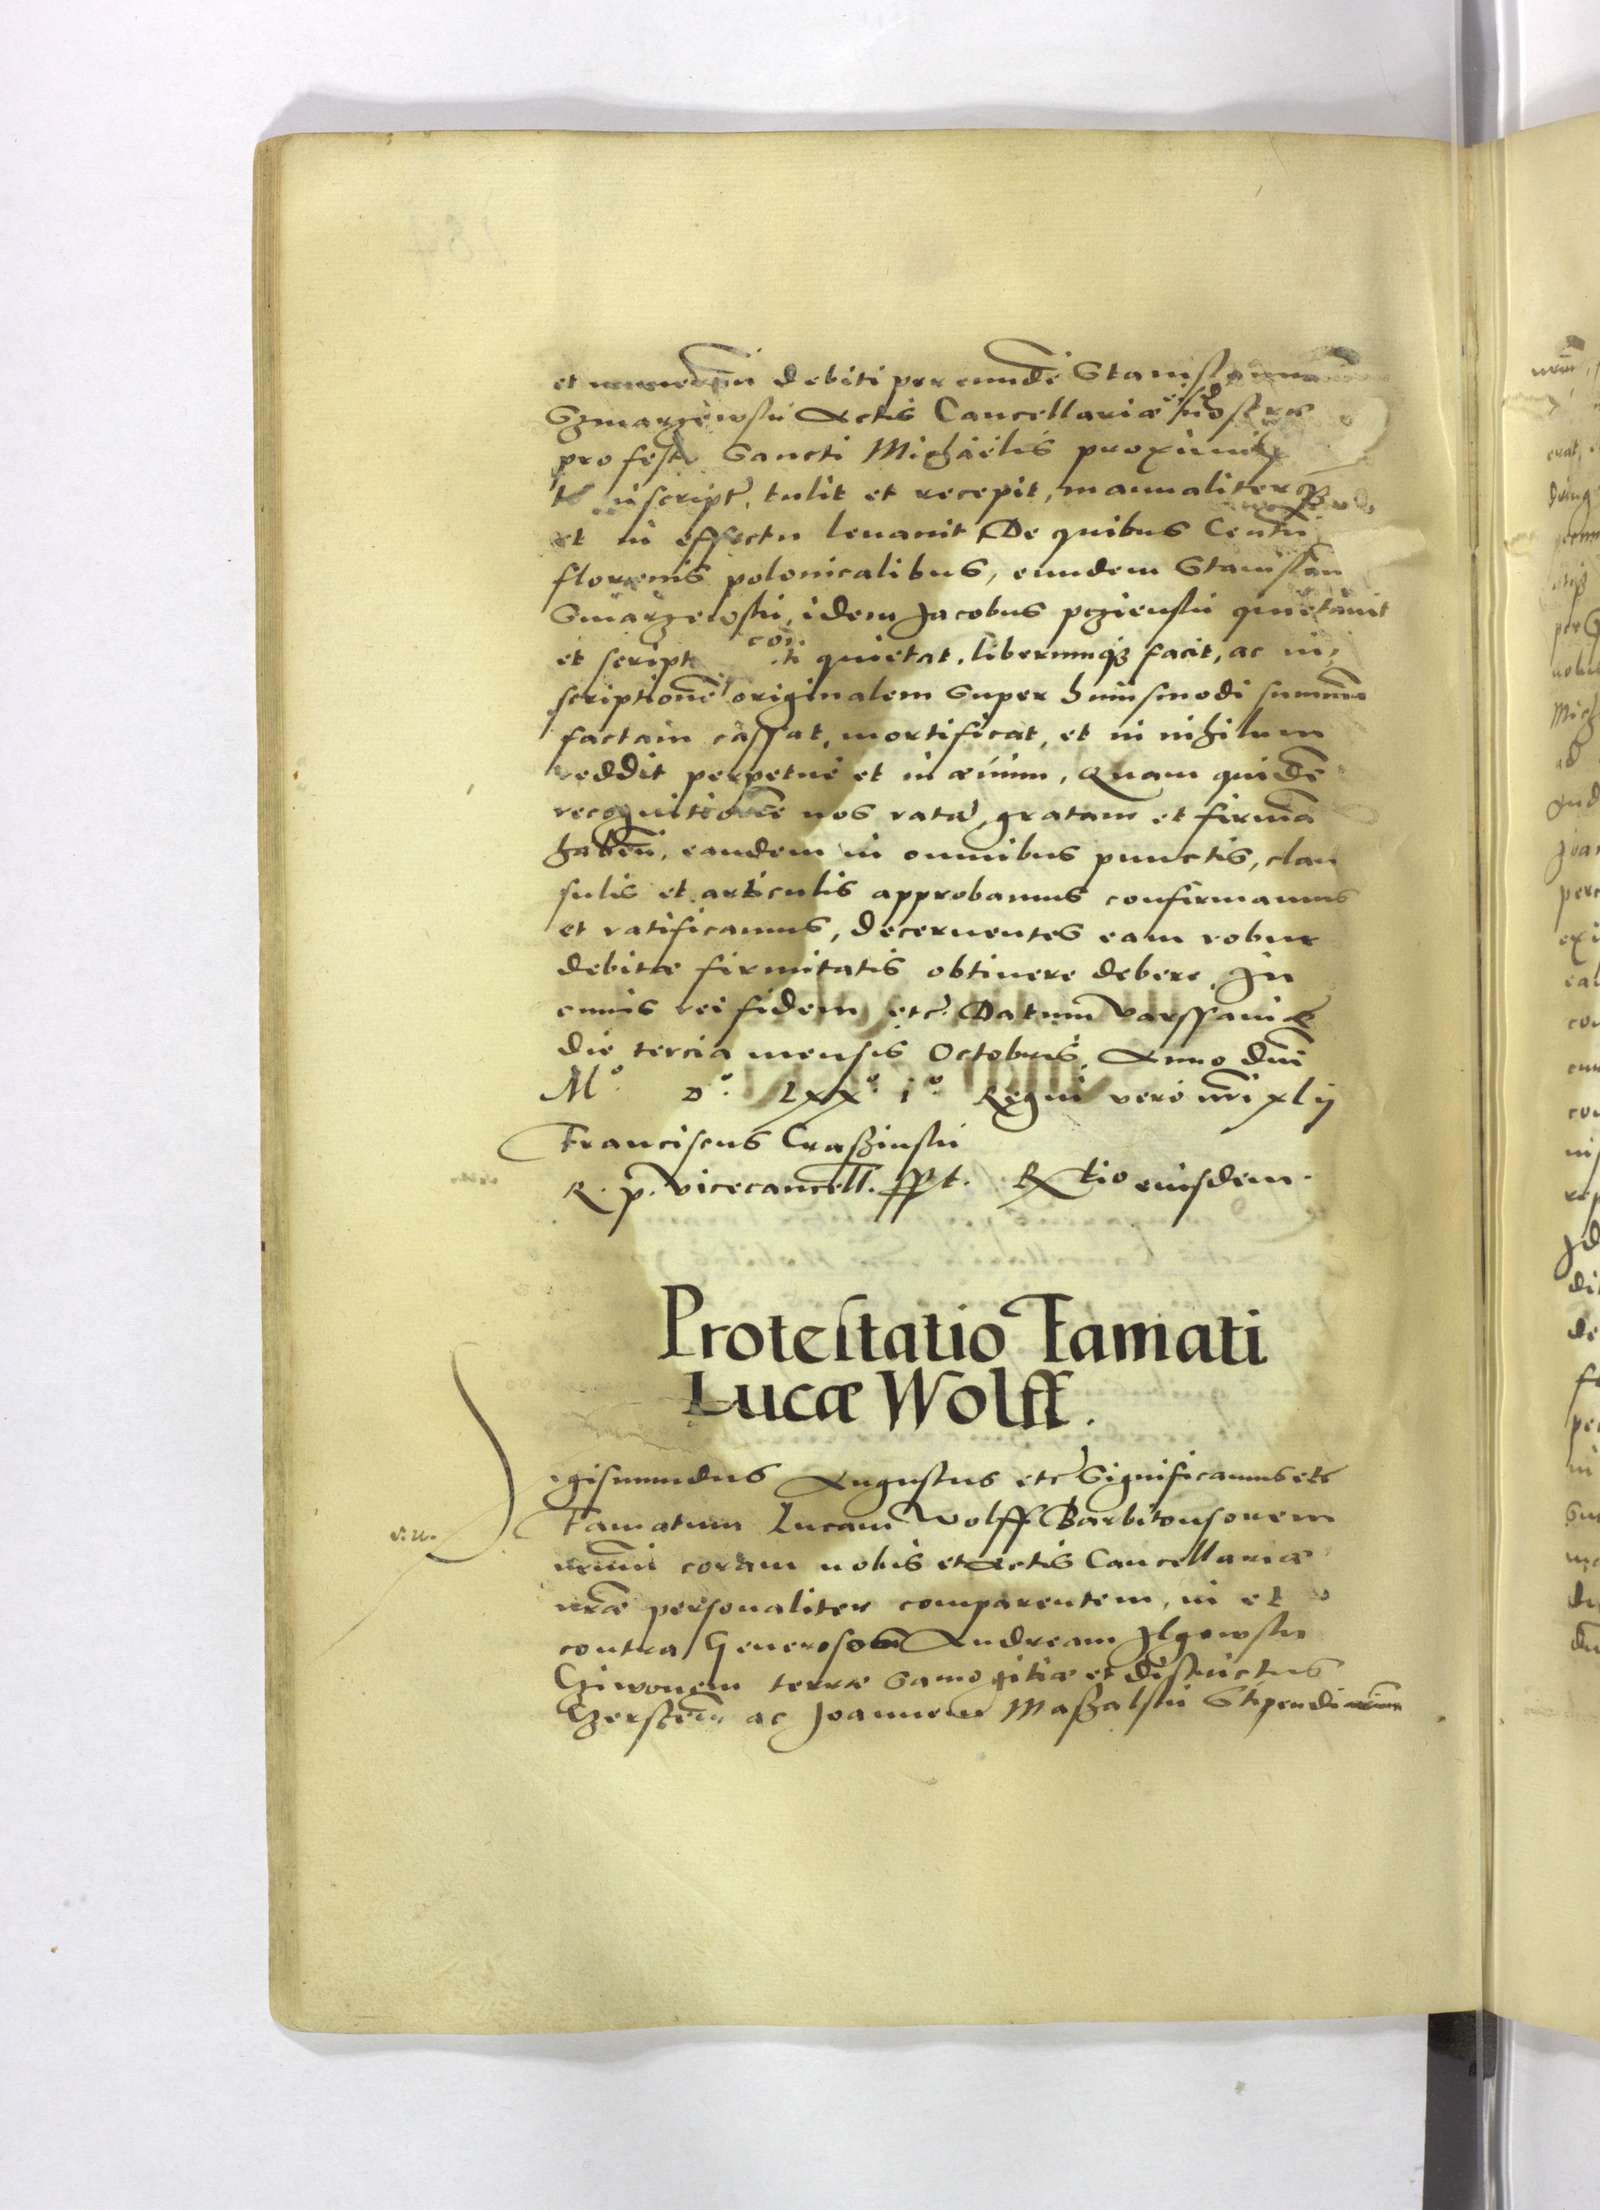 et debiti per eundē Stanisla
Gzmarzewski Actis Cancellariæ nostræ
pro festo Sancti Michaelis proxime
inscript, tulit et recepit, manualiterq3
et in effectu leuauit De quibus Centū
florenis polonicalibus, eundem Stanislau
Gmarzewski, idem Jacobus pczienski quietauit
et script quietat, liberumq3 facit, ac in,
scriptionē originalem super huiusmodi summa
factam cassat, mortificat, et in nihilum
reddit perpetue et in æuum, Quam quidē
recognitionē nos ratā, gratam et firmā
habeñ, eandem in omnibus punctis, clau
sulis et articulis approbamus confirmamus
et ratificamus, decernentes eam robur
debitæ firmitatis obtinere debere, In
cuius rei fidem etc. Datum varssauiæ
die tercia mensis Octobris, Anno dni
M° D° Lxx° i° Regni vero nri xlij
Franciscus Craßinski
R. p. vicecancell. sspt. Rtio eiusdem.
Protestatio Famati
Lucæ Wolff.
igismundus Augustus etc Significamus etc
Famatum Lucam Wolff Barbitonsorem
nrum coram nobis et Actis Cancellariæ
nræ personaliter comparentem, in et
contra Generosum Andream Ilgowski
Cziwonem terræ Samogitiæ et districtus
ac Joannem Maßalski Stipendiarium